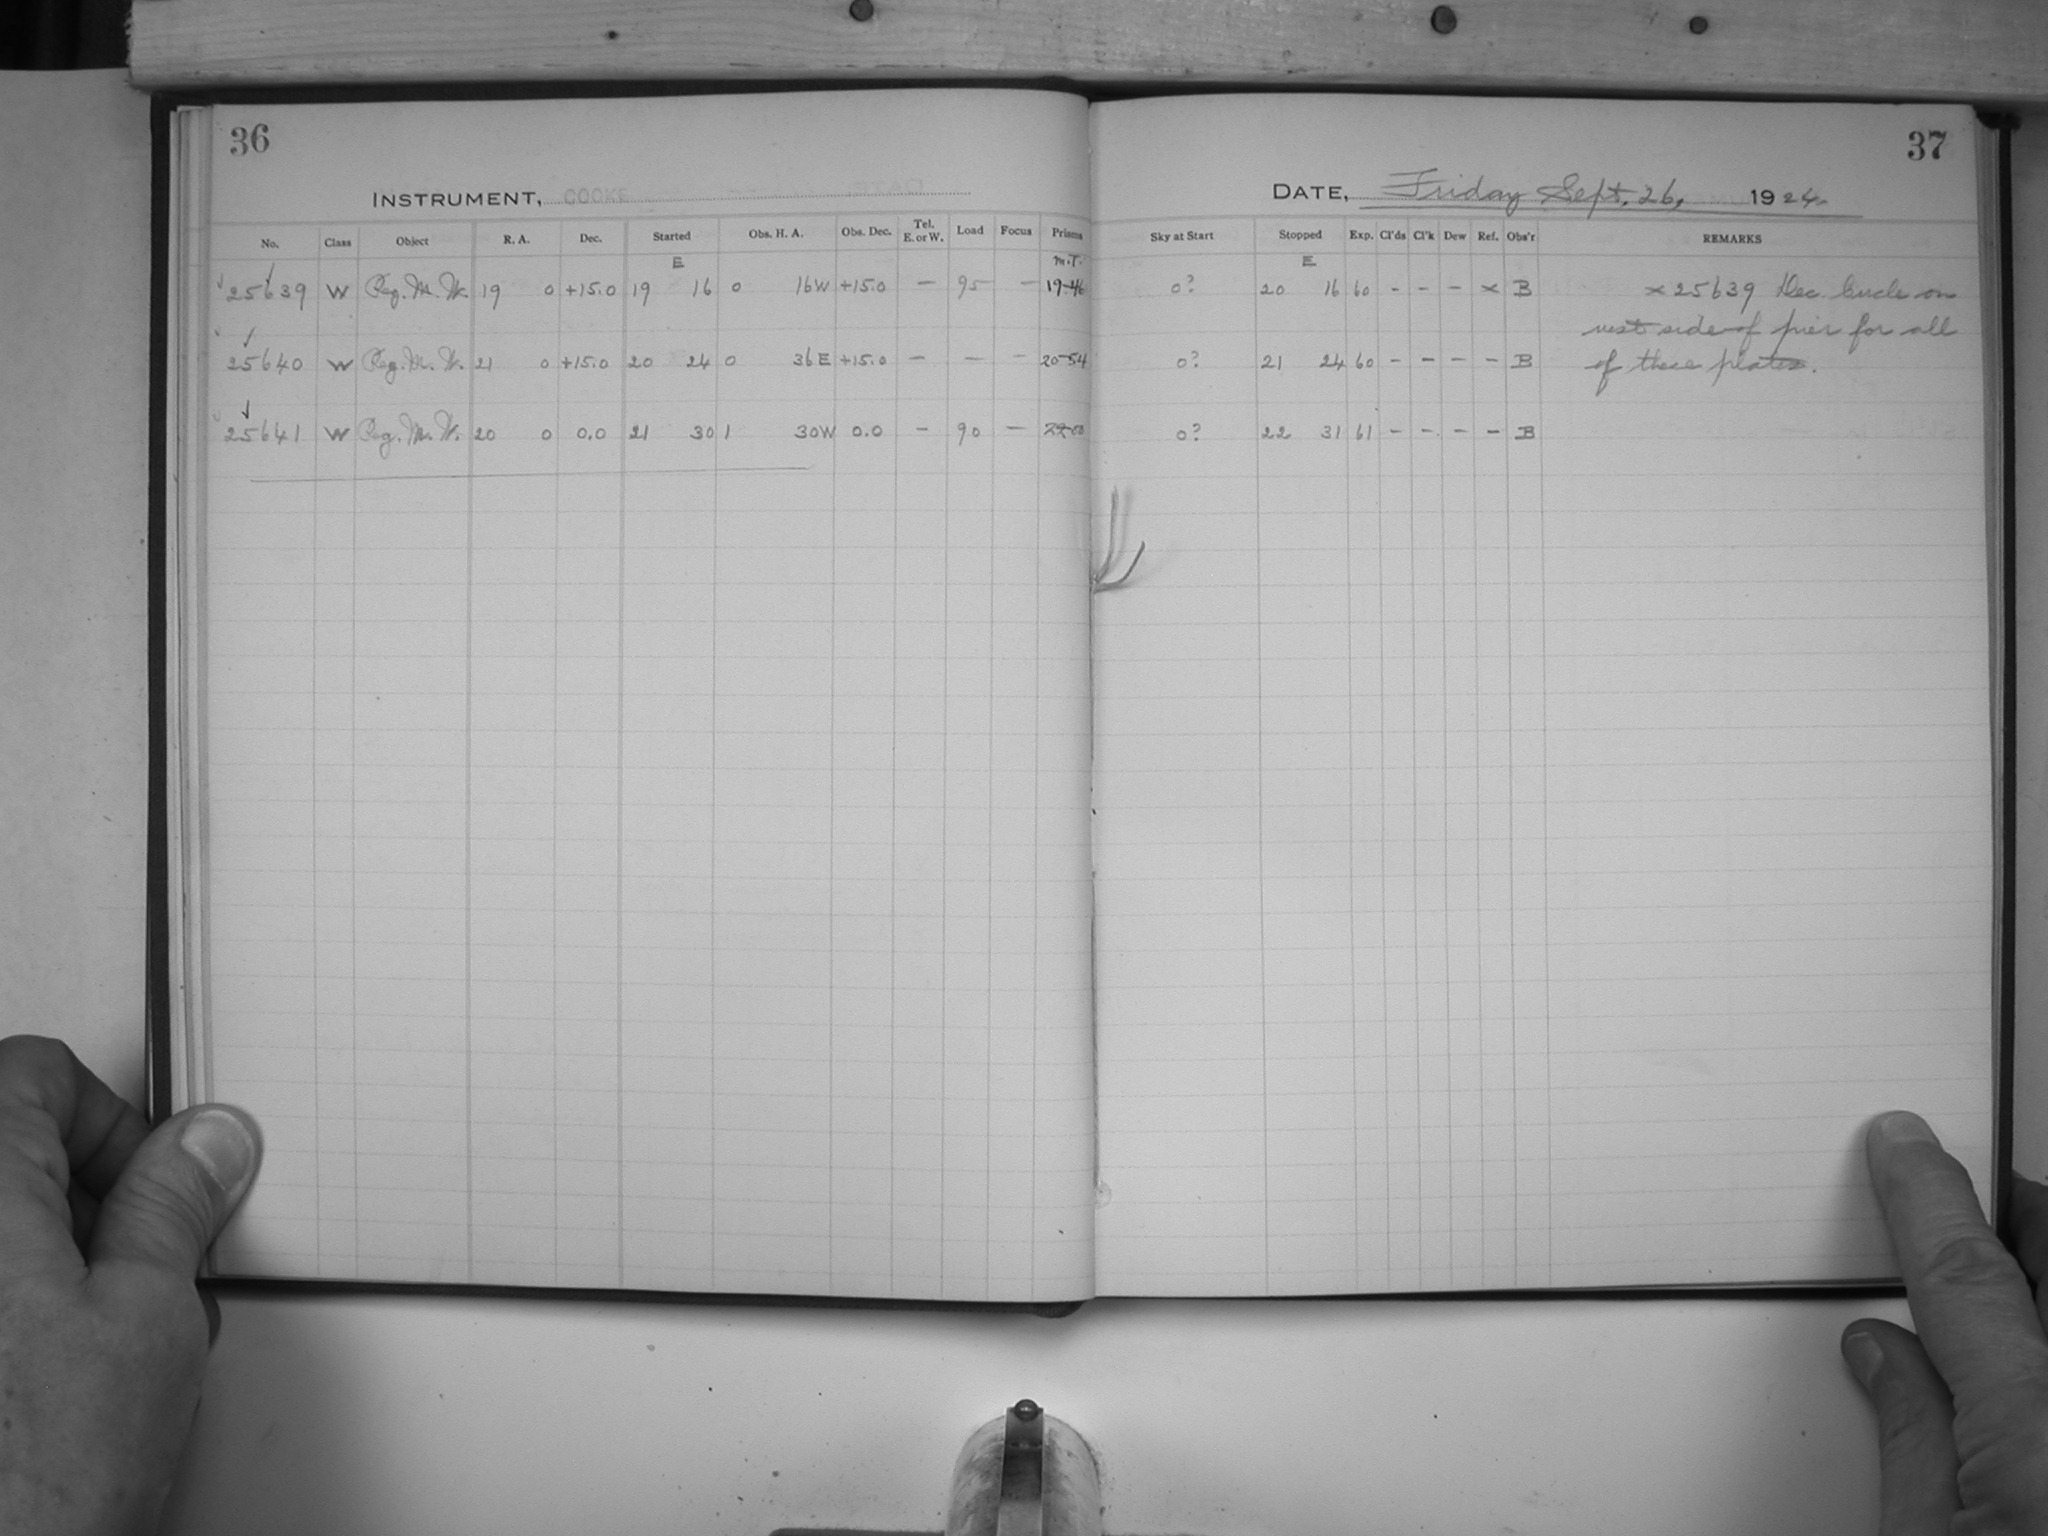 36
INSTRUMENT, COOKE
No. Class Object R. A. Dec. Started Obs. H. A. Obs. Dec. Tel. E. or W. Load Focus Prisms
E M.T.
25639 W Reg. M. W. 19 0 +15.0 19 16 0 16W +15.0 — 95 — 19-46
25640 W Reg. M. W. 21 0 +15.0 20 24 0 36E +15.0 — — — 20-54
25641 W Reg. M. W. 20 0 0.0 21 30 1 30W 0.0 — 90 —
37
DATE, Friday Sept. 26, 1924
Sky at Start Stopped Exp. Cl'ds Cl'k Dew Ref. Obs'r REMARKS
E
0? 20 16 60 - - - x B x 25639 Dec. Circle on
west side of pier for all
0? 21 24 60 - - - - B of these plates.
0? 22 31 61 - - - - B